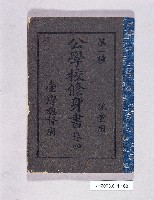 第一種
公學校修身書 卷四
兒童用
臺灣總督府